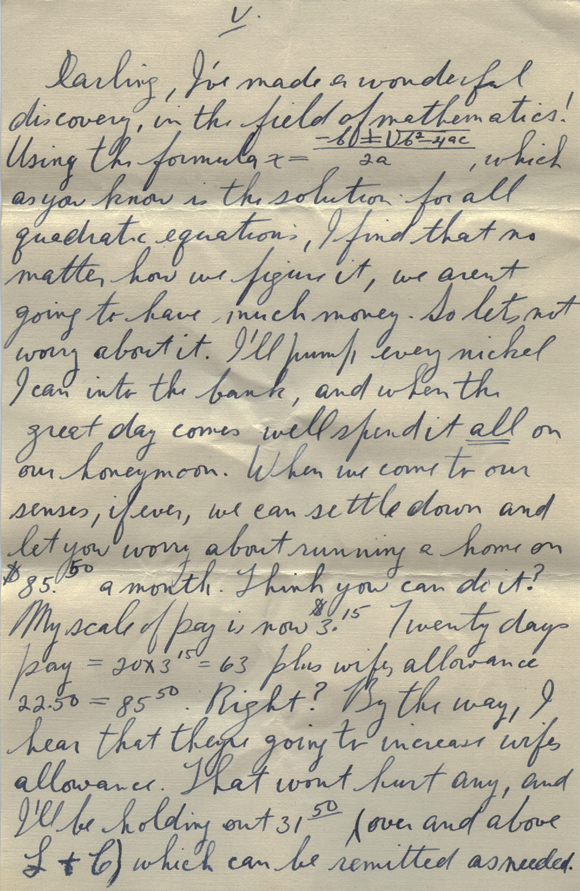 V.
Darling, I've made a wonderful
discovery, in the field of mathematics!
Using the formula x = -b ± √b²-4ac / 2a, which
as you know is the solution for all
quadratic equations, I find that no
matter how we figure it, we arent
going to have much money. So lets not
worry about it. I'll pump every nickel
I can into the bank, and when the
great day comes well spend it all on
our honeymoon. When we come to our
senses, if ever, we can settle down and
let you worry about running a home on
$85.50 a month. Think you can do it?
My scale of pay is now $3.15 Twenty days
pay = 20x3.15 = 63 plus wifes allowance
22.50 = 85.50. Right? By the way, I
hear that theyre going to increase wifes
allowance. That wont hurt any, and
I'll be holding out 31.50 (over and above
L + C) which can be remitted as needed.